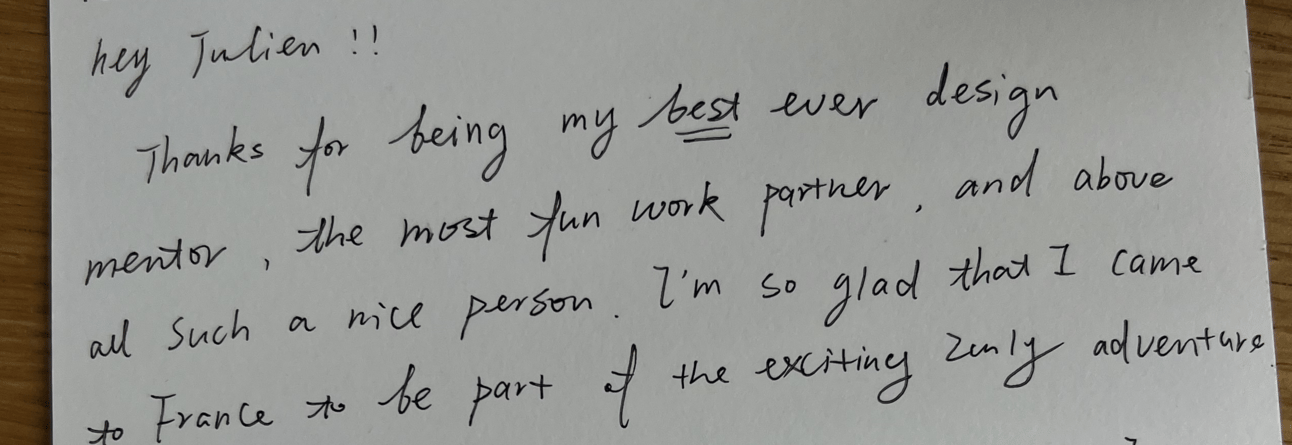 hey Julien !!
Thanks for being my best ever design
mentor, the most fun work partner, and above
all such a nice person. I'm so glad that I came
to France to be part of the exciting Zenly adventure